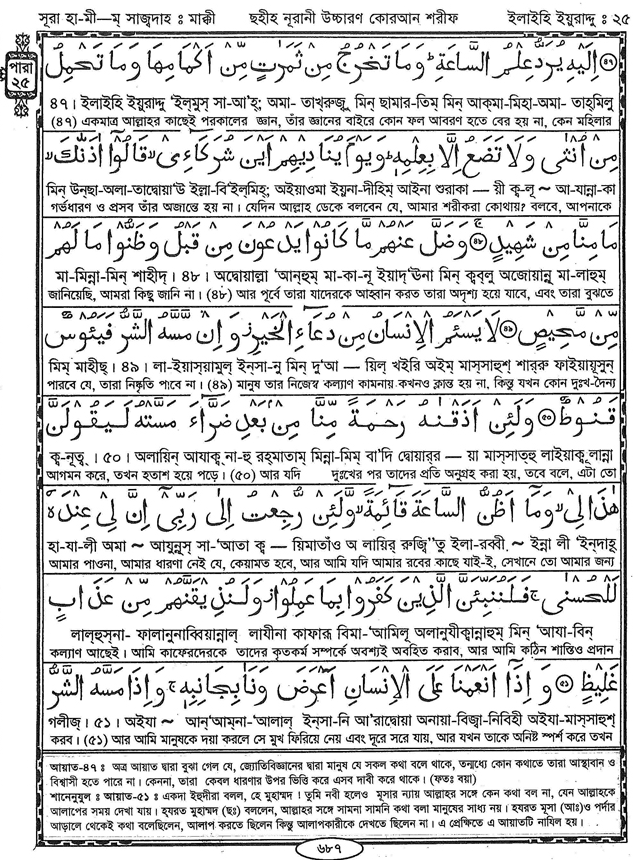 সূরা হা-মী—ম্ সাজ্বদাহ : মাক্কী ছহীহ নূরানী উচ্চারণ কোরআন শরীফ ইলাইহি ইয়ুরাদ্দু : ২৫
পারা
২৫
﴿٤٧﴾ اِلَيْهِ يُرَدُّ عِلْمُ السَّاعَةِ ؕ وَمَا تَخْرُجُ مِنْ ثَمَرٰتٍ مِّنْ اَكْمَامِهَا وَمَا تَحْمِلُ
৪৭। ইলাইহি ইয়ুরাদ্দু 'ইল্মুস্ সা-'আহ্; অমা- তাখ্রুজু মিন্ ছামার-তিম্ মিন্ আক্মা-মিহা-অমা- তাহ্মিলু
(৪৭) একমাত্র আল্লাহর কাছেই পরকালের জ্ঞান, তাঁর জ্ঞানের বাইরে কোন ফল আবরণ হতে বের হয় না, কেন মহিলার
مِنْ اُنْثٰى وَلَا تَضَعُ اِلَّا بِعِلْمِهٖ ؕ وَيَوْمَ يُنَادِيْهِمْ اَيْنَ شُرَكَآءِىْ ۙ قَالُوْٓا اٰذَنّٰكَ ۙ
মিন্ উন্ছা-অলা-তাদ্বোয়া'উ ইল্লা-বি'ইল্মিহ্; অইয়াওমা ইয়ুনা-দীহিম্ আইনা শুরাকা — য়ী ক্ব-লূ ~ আ-যান্না-কা
গর্ভধারণ ও প্রসব তাঁর অজান্তে হয় না। যেদিন আল্লাহ ডেকে বলবেন যে, আমার শরীকরা কোথায়? বলবে, আপনাকে
مَا مِنَّا مِنْ شَهِيْدٍ ۚ ﴿٤٨﴾ وَضَلَّ عَنْهُمْ مَّا كَانُوْا يَدْعُوْنَ مِنْ قَبْلُ وَظَنُّوْا مَا لَهُمْ
মা-মিন্না-মিন্ শাহীদ্। ৪৮। অদ্বোয়াল্লা 'আন্হুম্ মা-কা-নূ ইয়াদ্'ঊনা মিন্ ক্বব্লু অজোয়ান্নূ মা-লাহুম্
জানিয়েছি, আমরা কিছু জানি না। (৪৮) আর পূর্বে তারা যাদেরকে আহ্বান করত তারা অদৃশ্য হয়ে যাবে, এবং তারা বুঝতে
مِّنْ مَّحِيْصٍ ﴿٤٩﴾ لَا يَسْـَٔمُ الْاِنْسَانُ مِنْ دُعَآءِ الْخَيْرِ ۫ وَاِنْ مَّسَّهُ الشَّرُّ فَيَـُٔوْسٌ
মিম্ মাহীছ্। ৪৯। লা-ইয়াস্য়ামুল্ ইন্সা-নু মিন্ দু'আ — য়িল্ খইরি অইম্ মাস্সাহুশ্ শার্‌রু ফাইয়ায়ূসুন্
পারবে যে, তারা নিষ্কৃতি পাবে না। (৪৯) মানুষ তার নিজেস্ব কল্যাণ কামনায় কখনও ক্লান্ত হয় না, কিন্তু যখন কোন দুঃখ-দৈন্য
قَنُوْطٌ ﴿٥٠﴾ وَلَئِنْ اَذَقْنٰهُ رَحْمَةً مِّنَّا مِنْۢ بَعْدِ ضَرَّآءَ مَسَّتْهُ لَيَقُوْلَنَّ
ক্বনূত্ব্। ৫০। অলায়িন্ আযাক্ব্ না-হু রহ্মাতাম্ মিন্না-মিম্ বা'দি দ্বোয়ার্‌র — য়া মাস্সাত্হু লাইয়াক্বূলান্না
আগমন করে, তখন হতাশ হয়ে পড়ে। (৫০) আর যদি দুঃখের পর তাদের প্রতি অনুগ্রহ করা হয়, তবে বলে, এটা তো
هٰذَا لِىْ ۙ وَمَآ اَظُنُّ السَّاعَةَ قَآئِمَةً ۙ وَّلَئِنْ رُّجِعْتُ اِلٰى رَبِّىْٓ اِنَّ لِىْ عِنْدَهٗ
হা-যা-লী অমা ~ আযুন্নুস্ সা-'আতা ক্ব — য়িমাতাঁও অ লায়ির্ রুজ্বি'তু ইলা-রব্বী ~ ইন্না লী 'ইন্দাহূ
আমার পাওনা, আমার ধারণা নেই যে, কেয়ামত হবে, আর আমি যদি আমার রবের কাছে যাই-ই, সেখানে তো আমার জন্য
لَلْحُسْنٰى ۚ فَلَنُنَبِّئَنَّ الَّذِيْنَ كَفَرُوْا بِمَا عَمِلُوْا ۫ وَلَنُذِيْقَنَّهُمْ مِّنْ عَذَابٍ
লাল্হুস্না- ফালানুনাব্বিয়ান্নাল্ লাযীনা কাফারূ বিমা-'আমিলূ অলানুযীক্বান্নাহুম্ মিন্ 'আযা-বিন্
কল্যাণ আছেই। আমি কাফেরদেরকে তাদের কৃতকর্ম সম্পর্কে অবশ্যই অবহিত করাব, আর আমি কঠিন শাস্তিও প্রদান
غَلِيْظٍ ﴿٥١﴾ وَاِذَآ اَنْعَمْنَا عَلَى الْاِنْسَانِ اَعْرَضَ وَنَاٰ بِجَانِبِهٖ ۚ وَاِذَا مَسَّهُ الشَّرُّ
গলীজ্। ৫১। অইযা ~ আন্'আম্না-'আলাল্ ইন্সা-নি আ'রাদ্বোয়া অনায়া-বিজ্বা-নিবিহী অইযা-মাস্সাহুশ্
করব। (৫১) আর আমি মানুষকে দয়া করলে সে মুখ ফিরিয়ে নেয় এবং দূরে সরে যায়, আর যখন তাকে অনিষ্ট স্পর্শ করে তখন
আয়াত-৪৭ : অত্র আয়াত দ্বারা বুঝা গেল যে, জ্যোতির্বিজ্ঞানের দ্বারা মানুষ যে সকল কথা বলে থাকে, তন্মধ্যে কোন কথাতে তারা আস্থাবান ও
বিশ্বাসী হতে পারে না। কেননা, তারা কেবল ধারণার উপর ভিত্তি করে এসব দাবী করে থাকে। (ফতঃ বয়া)
শানেনুযুল : আয়াত-৫১ : একদা ইহুদীরা বলল, হে মুহাম্মদ ! তুমি নবী হলেও মূসার ন্যায় আল্লাহর সঙ্গে কেন কথা বল না, যেন আল্লাহকে
আলাপের সময় দেখা যায়। হযরত মুহাম্মদ (ছঃ) বললেন, আল্লাহর সঙ্গে সামনা সামনি কথা বলা মানুষের সাধ্য নয়। হযরত মূসা (আঃ)ও পর্দার
আড়ালে থেকেই কথা বলেছিলেন, আলাপ করতে ছিলেন কিন্তু আলাপকারীকে দেখতে ছিলেন না। এ প্রেক্ষিতে এ আয়াতটি নাযিল হয়।
৬৮৭